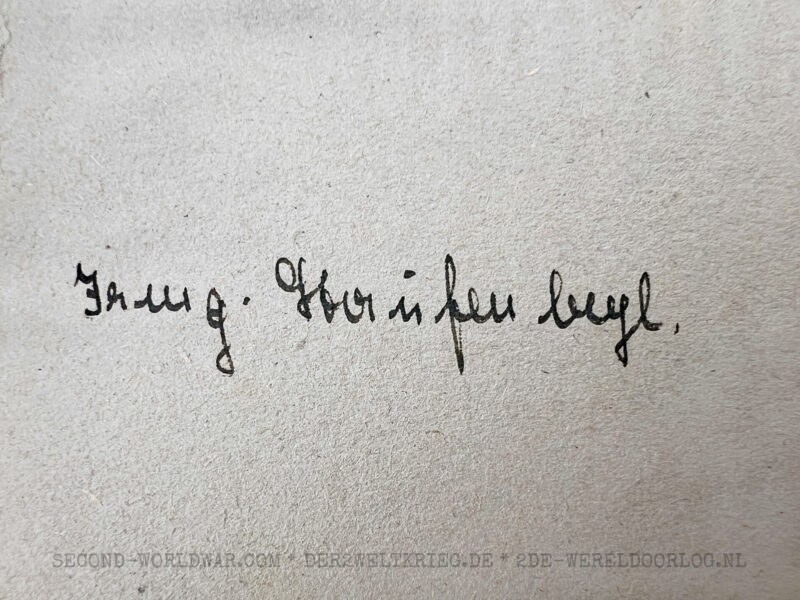 Staufenbeyl.
SECOND-WORLDWAR.COM * DER2WELTKRIEG.DE * 2DE-WERELDOORLOG.NL